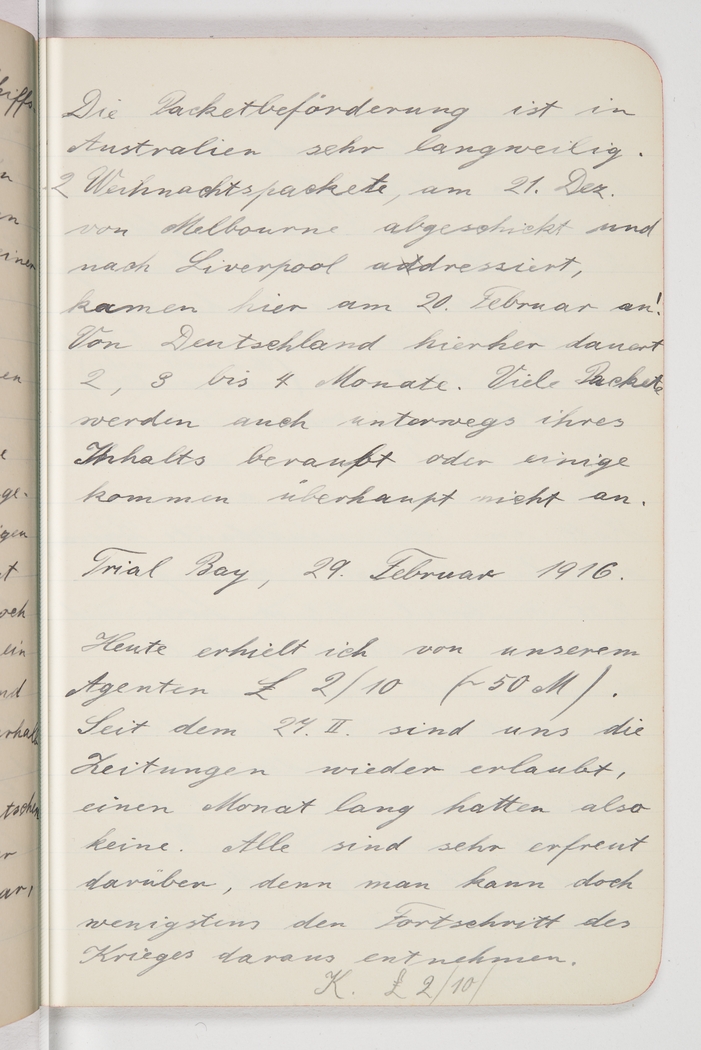 Die Packetbeförderung ist in
Australien sehr langweilig.
2 Weihnachtspackete, am 21. Dez.
von Melbourne abgeschickt und
nach Liverpool addressiert,
kamen hier am 20. Februar an!
Von Deutschland hierher dauert
2, 3 bis 4 Monate. Viele Packete
werden auch unterwegs ihres
Inhalts beraubt oder einige
kommen überhaupt nicht an.
Trial Bay, 29. Februar 1916.
Heute erhielt ich von unserem
Agenten £ 2/10 (~50 M).
Seit dem 27. II. sind uns die
Zeitungen wieder erlaubt,
einen Monat lang hatten also
keine. Alle sind sehr erfreut
darüber, denn man kann doch
wenigstens den Fortschritt des
Krieges daraus entnehmen.
K. £ 2/10/